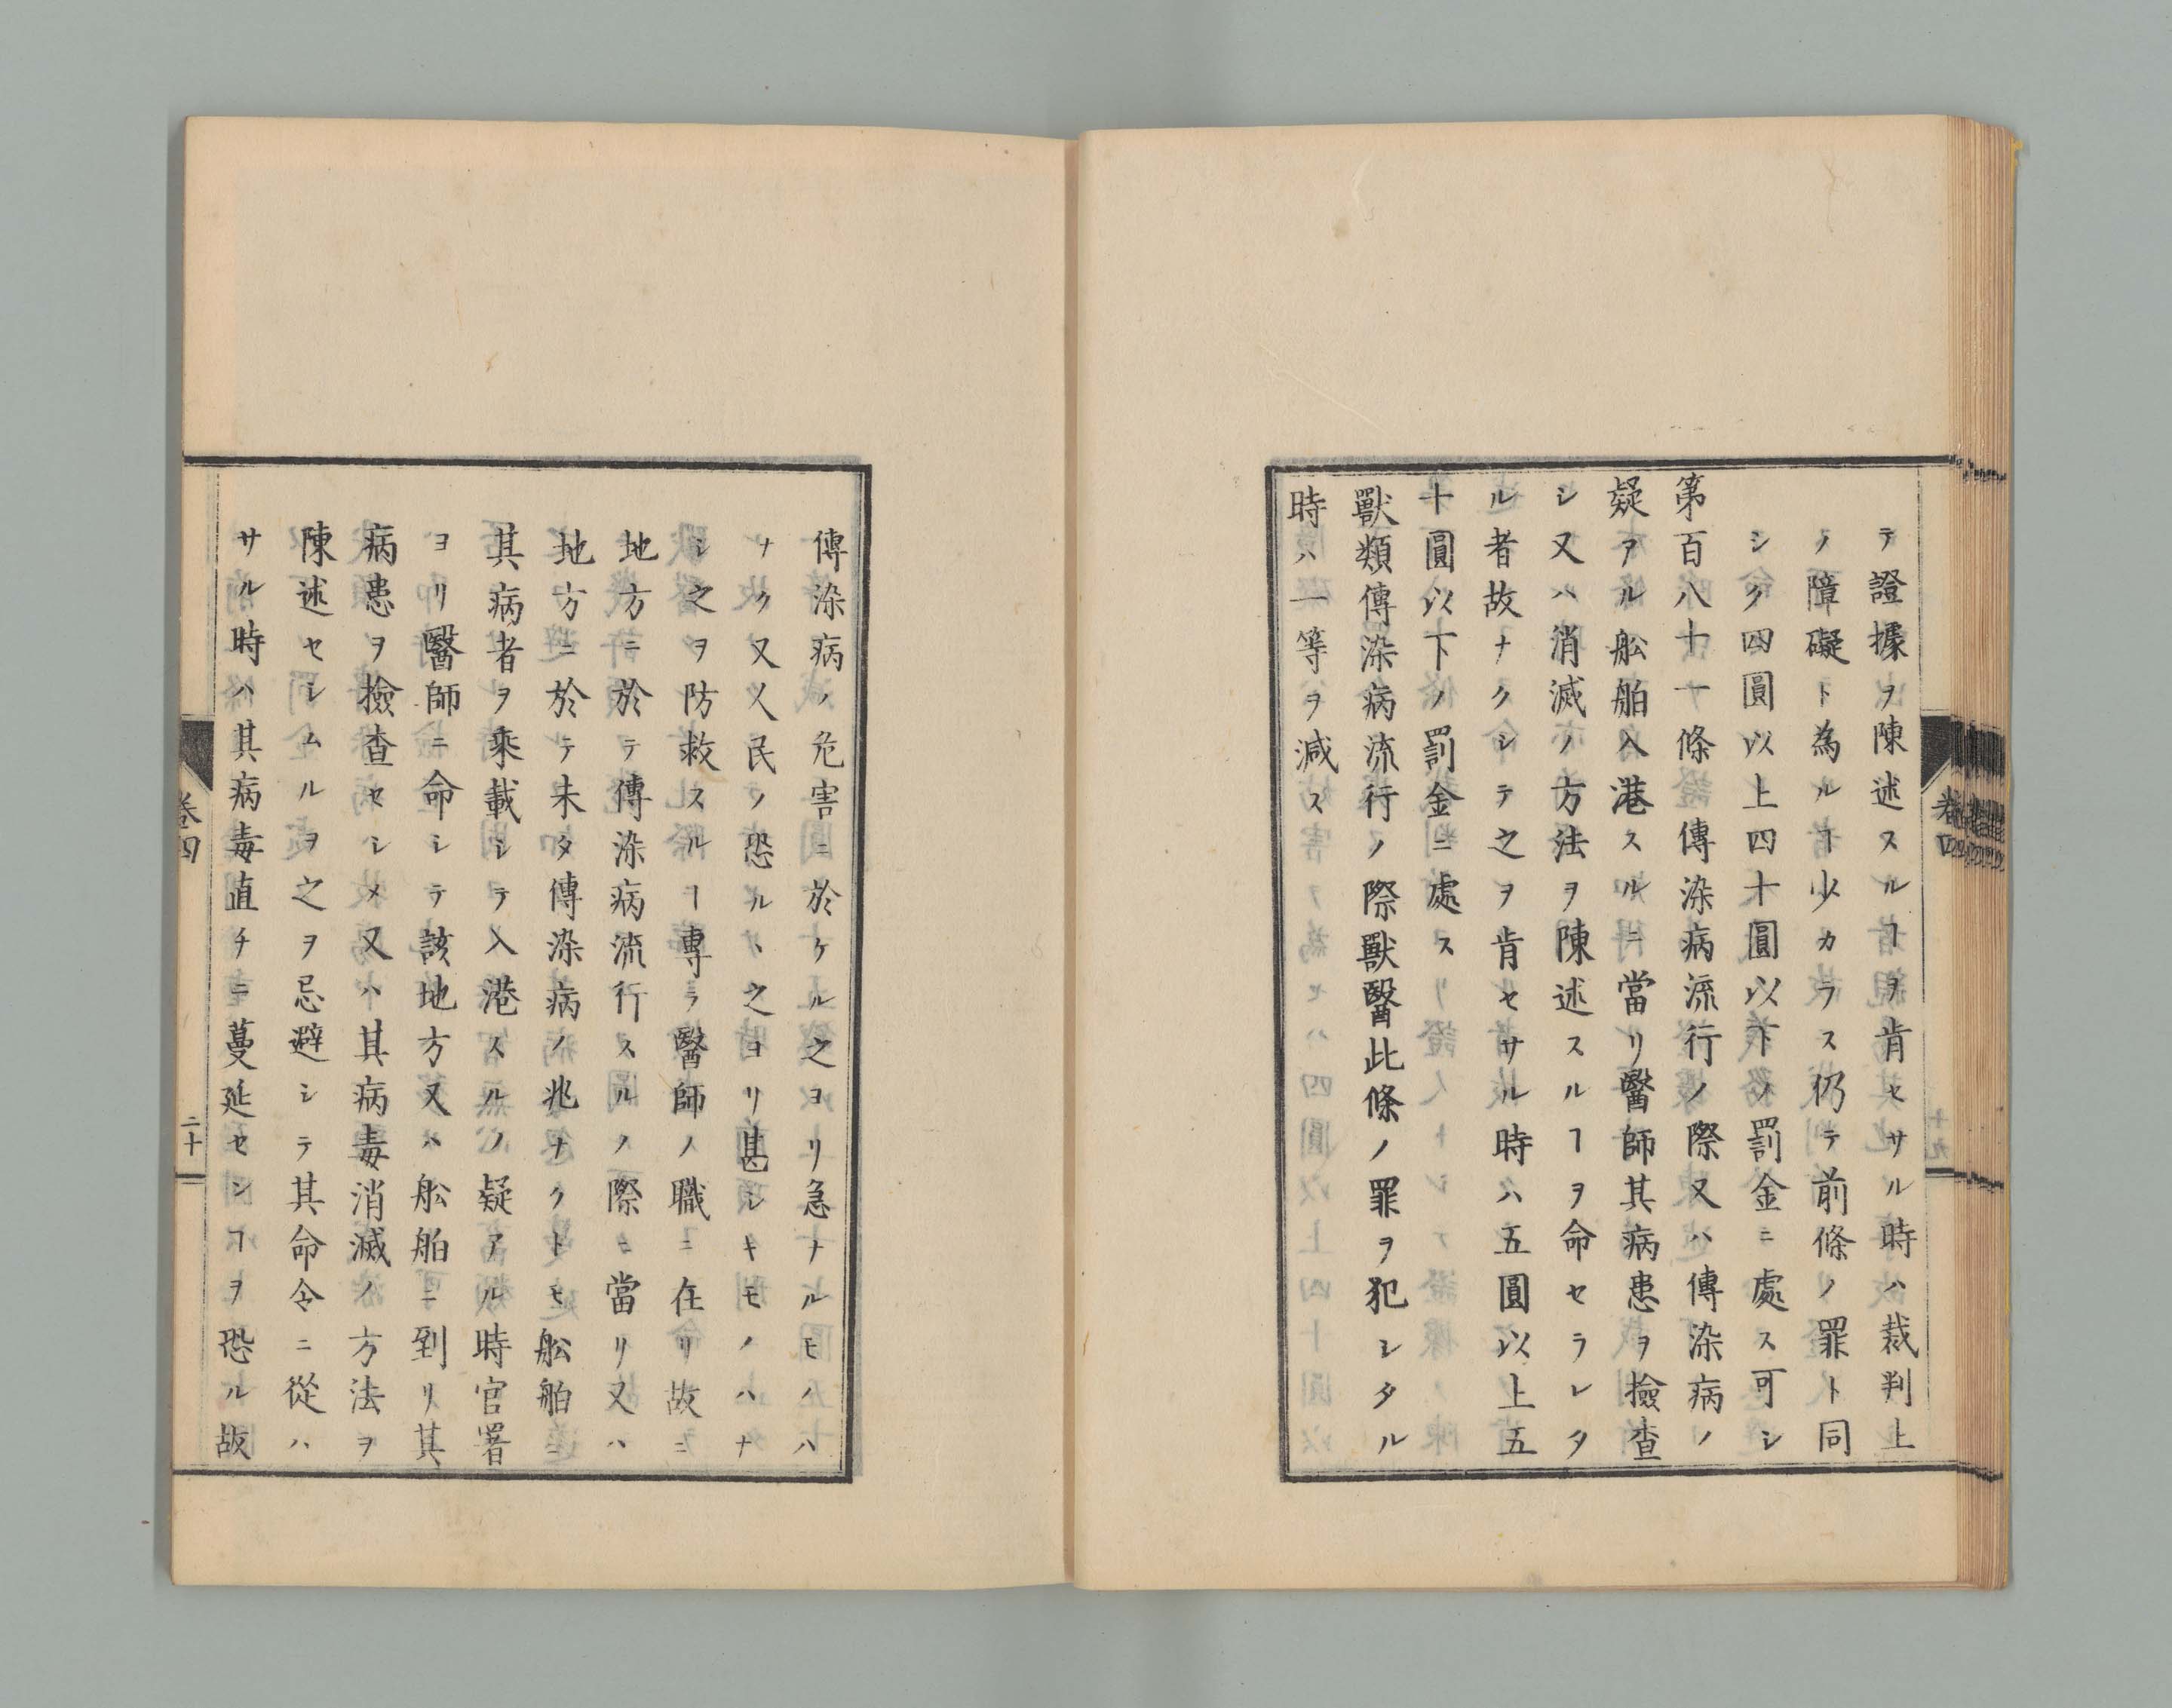 テ證據ヲ陳述スルヿヲ肯セサル時ハ裁判上
ノ障礙ト為ルヿ少カラス仍テ前條ノ罪ト同
シク四圓以上四十圓以下ノ罰金ニ處ス可シ
第百八十一條傳染病流行ノ際又ハ傳染病ノ
疑アル舩舶入港スルニ當リ醫師其病患ヲ撿查
シ又ハ消滅ノ方法ヲ陳述スルヿヲ命セラレタ
ル者故ナクシテ之ヲ肯セサル時ハ五圓以上五
十圓以下ノ罰金ニ處ス
獸類傳染病流行ノ際獸醫此條ノ罪ヲ犯シタル
時ハ一等ヲ減ス
卷四
傳染病ノ危害ニ於ケル之ヨリ急ナルモノハ
ナク又人民ノ恐ルヽ之ヨリ甚シキモノハナ
シ之ヲ防救スルヿ專ラ醫師ノ職ニ在リ故ニ
地方ニ於テ傳染病流行スルノ際ニ當リ又ハ
地方ニ於テ未タ傳染病ノ兆ナクトモ舩舶ニ
其病者ヲ乘載シテ入港スルノ疑アル時官署
ヨリ醫師ニ命シテ該地方又ハ舩舶ニ到リ其
病患ヲ撿查セシメ又ハ其病毒消滅ノ方法ヲ
陳述セシムルヲ之ヲ忌避シテ其命令ニ從ハ
サル時ハ其病毒直チニ蔓延センヿヲ恐ル故
卷四
二十